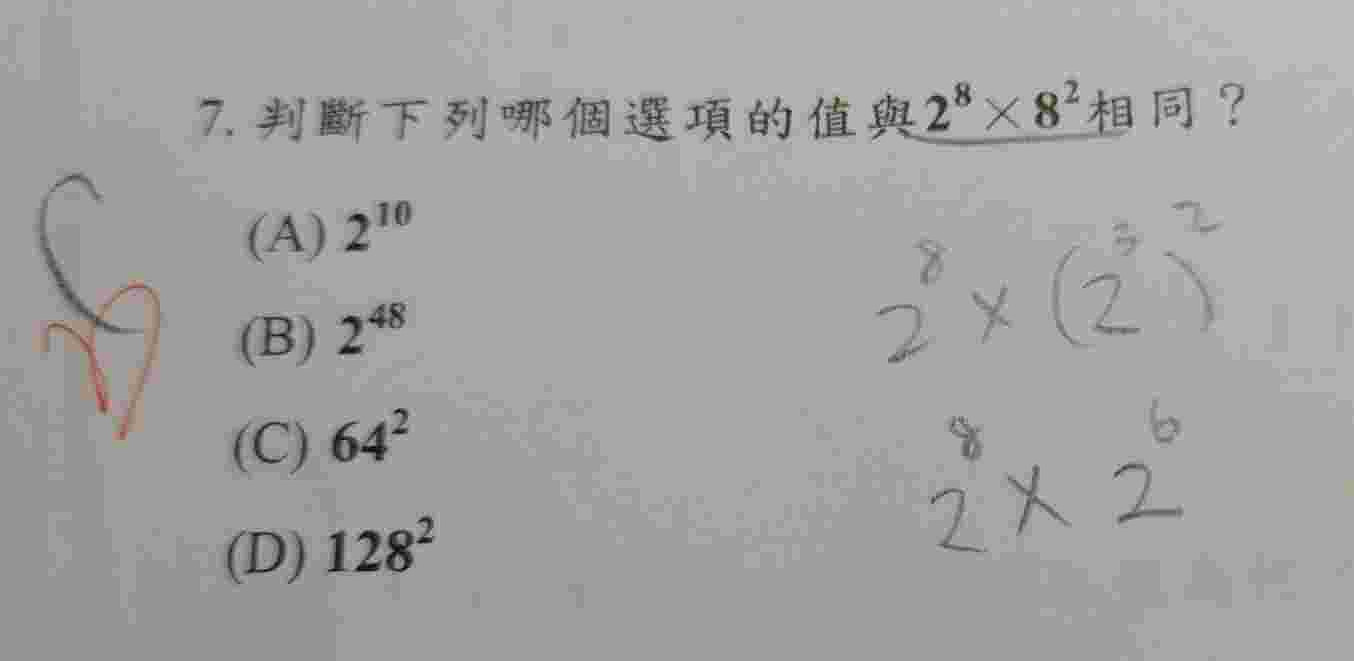 7. 判斷下列哪個選項的值與2⁸×8²相同？
(A) 2¹⁰
(B) 2⁴⁸
(C) 64²
(D) 128²
C
2⁸ × (2³)²
2⁸ × 2⁶